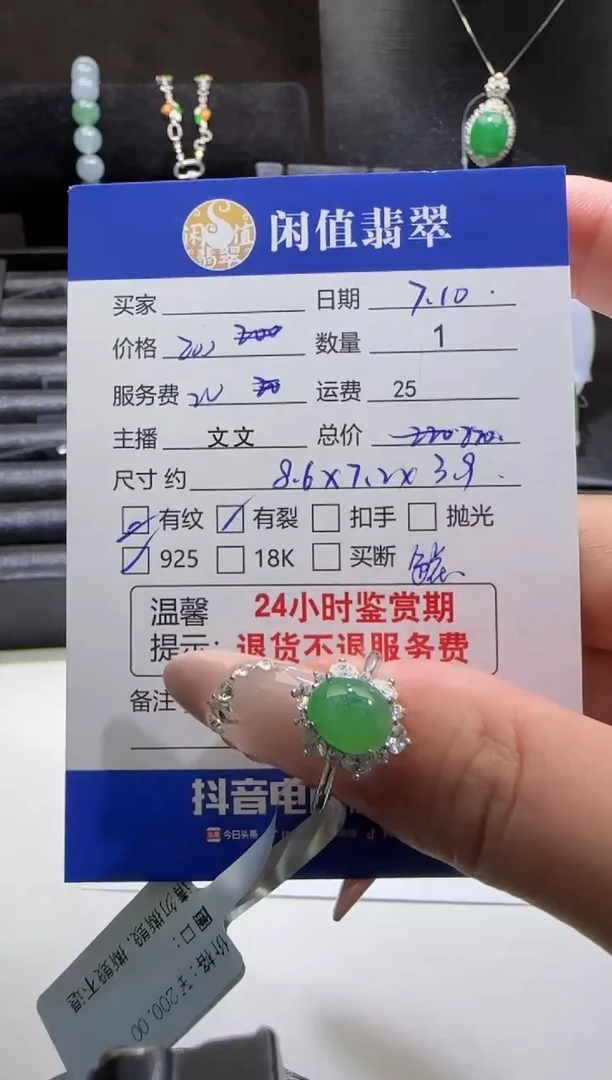 闲值翡翠
闲值翡翠
买家 日期 7.10
价格 200 300 数量 1
服务费 20 30 运费 25
主播 文文 总价
尺寸 约 8.6x7.2x3.9
有纹 有裂 扣手 抛光
925 18K 买断
温馨 24小时鉴赏期
提示: 退货不退服务费
备注
抖音电
今日头条
请勿撕毁,撕毁不退
圈口:
价格:¥200.00